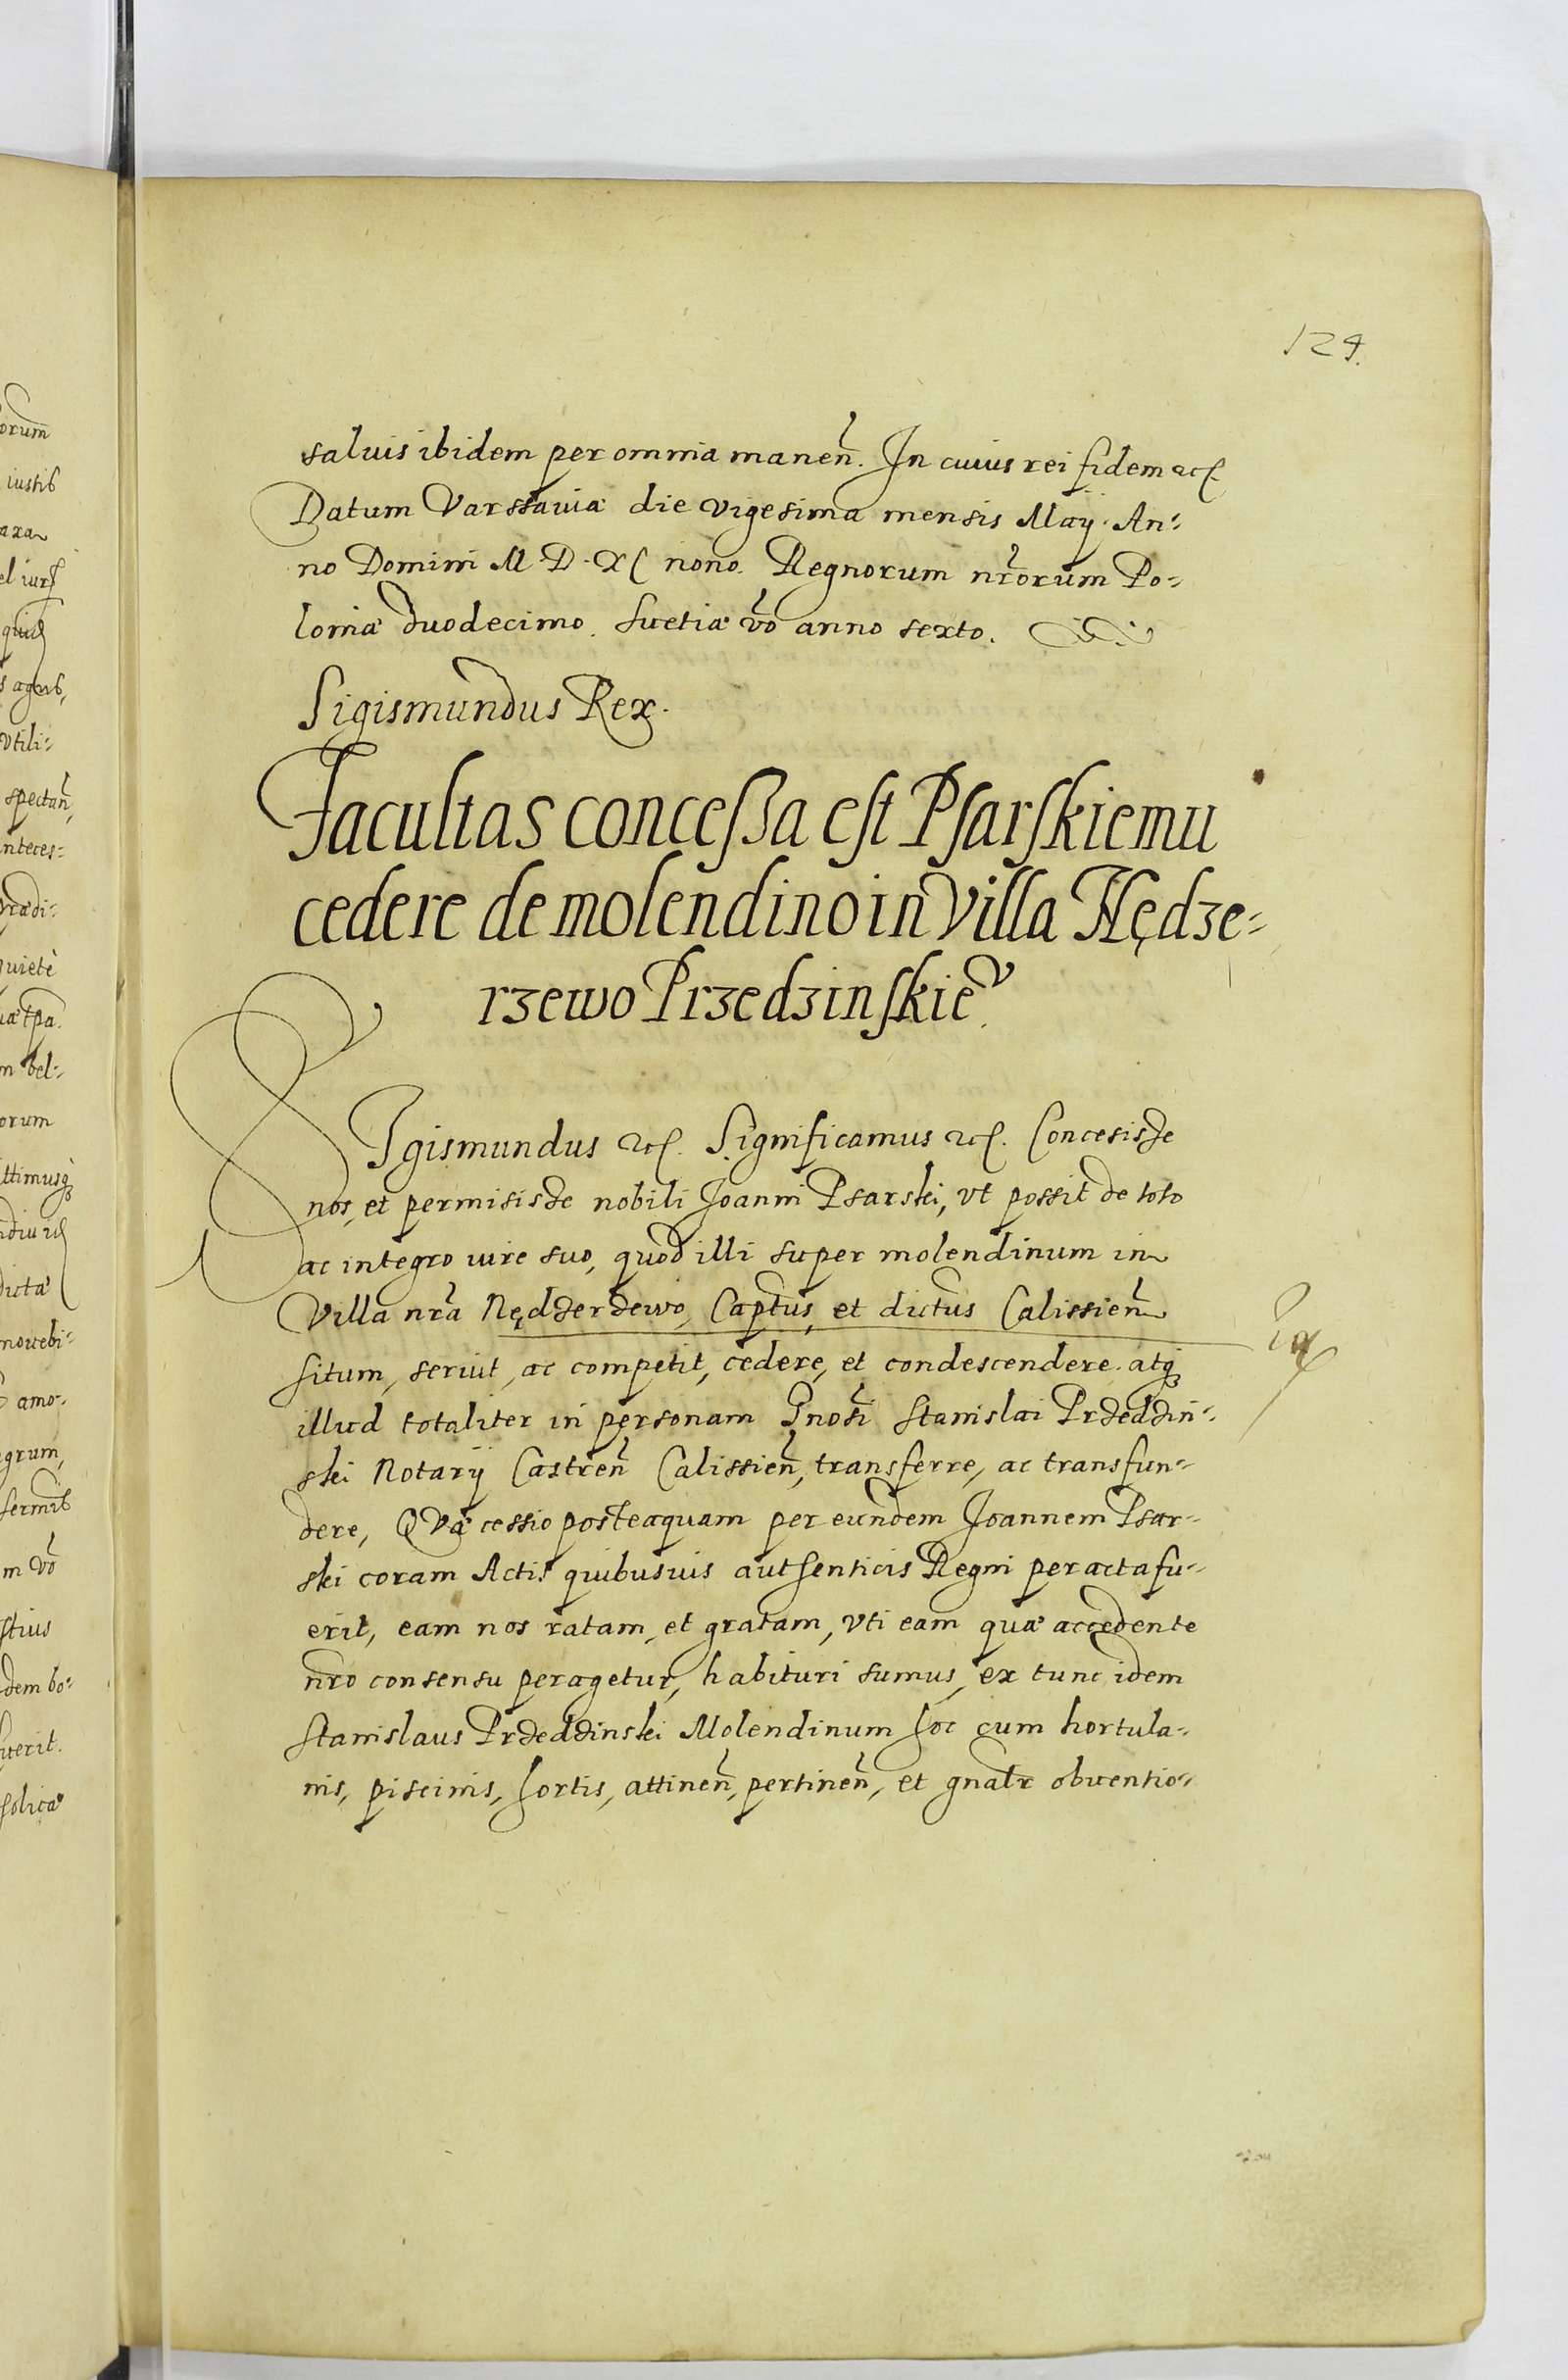 124.
saluis ibidem per omnia manen̄. In cuius rei fidem etc.
Datum Varssauiæ die vigesima mensis Maij. An-
no Domini M. D. XC nono. Regnorum nr̄orum Po-
loniæ duodecimo. Suetiæ v̄o anno sexto.
Sigismundus Rex.
Facultas concessa est Psarskiemu
cedere de molendino in Villa Nędze-
rzewo Przedzinskieᵛ
SIgismundus etc. Significamus etc. Concesisse
nos, et permisisse nobili Joanni Psarski, vt possit de toto
ac integro iure suo, quod illi super molendinum in
Villa nr̄a Nędzerzewo, Captus, et dictus Calissien̄
situm, seruit, ac competit, cedere, et condescendere. atq3
illud totaliter in personam Gnosi Stanislai Przedzin-
ski Notarij Castren̄ Calissien̄, transferre, ac transfun-
dere, QVæ cessio posteaquam per eundem Joannem Psar-
ski coram Actis quibusuis authenticis Regni peracta fu-
erit, eam nos ratam, et gratam, vti eam quæ accedente
nr̄o consensu peragetur, habituri sumus, ex tunc idem
Stanislaus Przedzinski Molendinum hoc cum hortula-
nis, piscinis, hortis, attinen̄, pertinen̄, et gnalr obuentio-